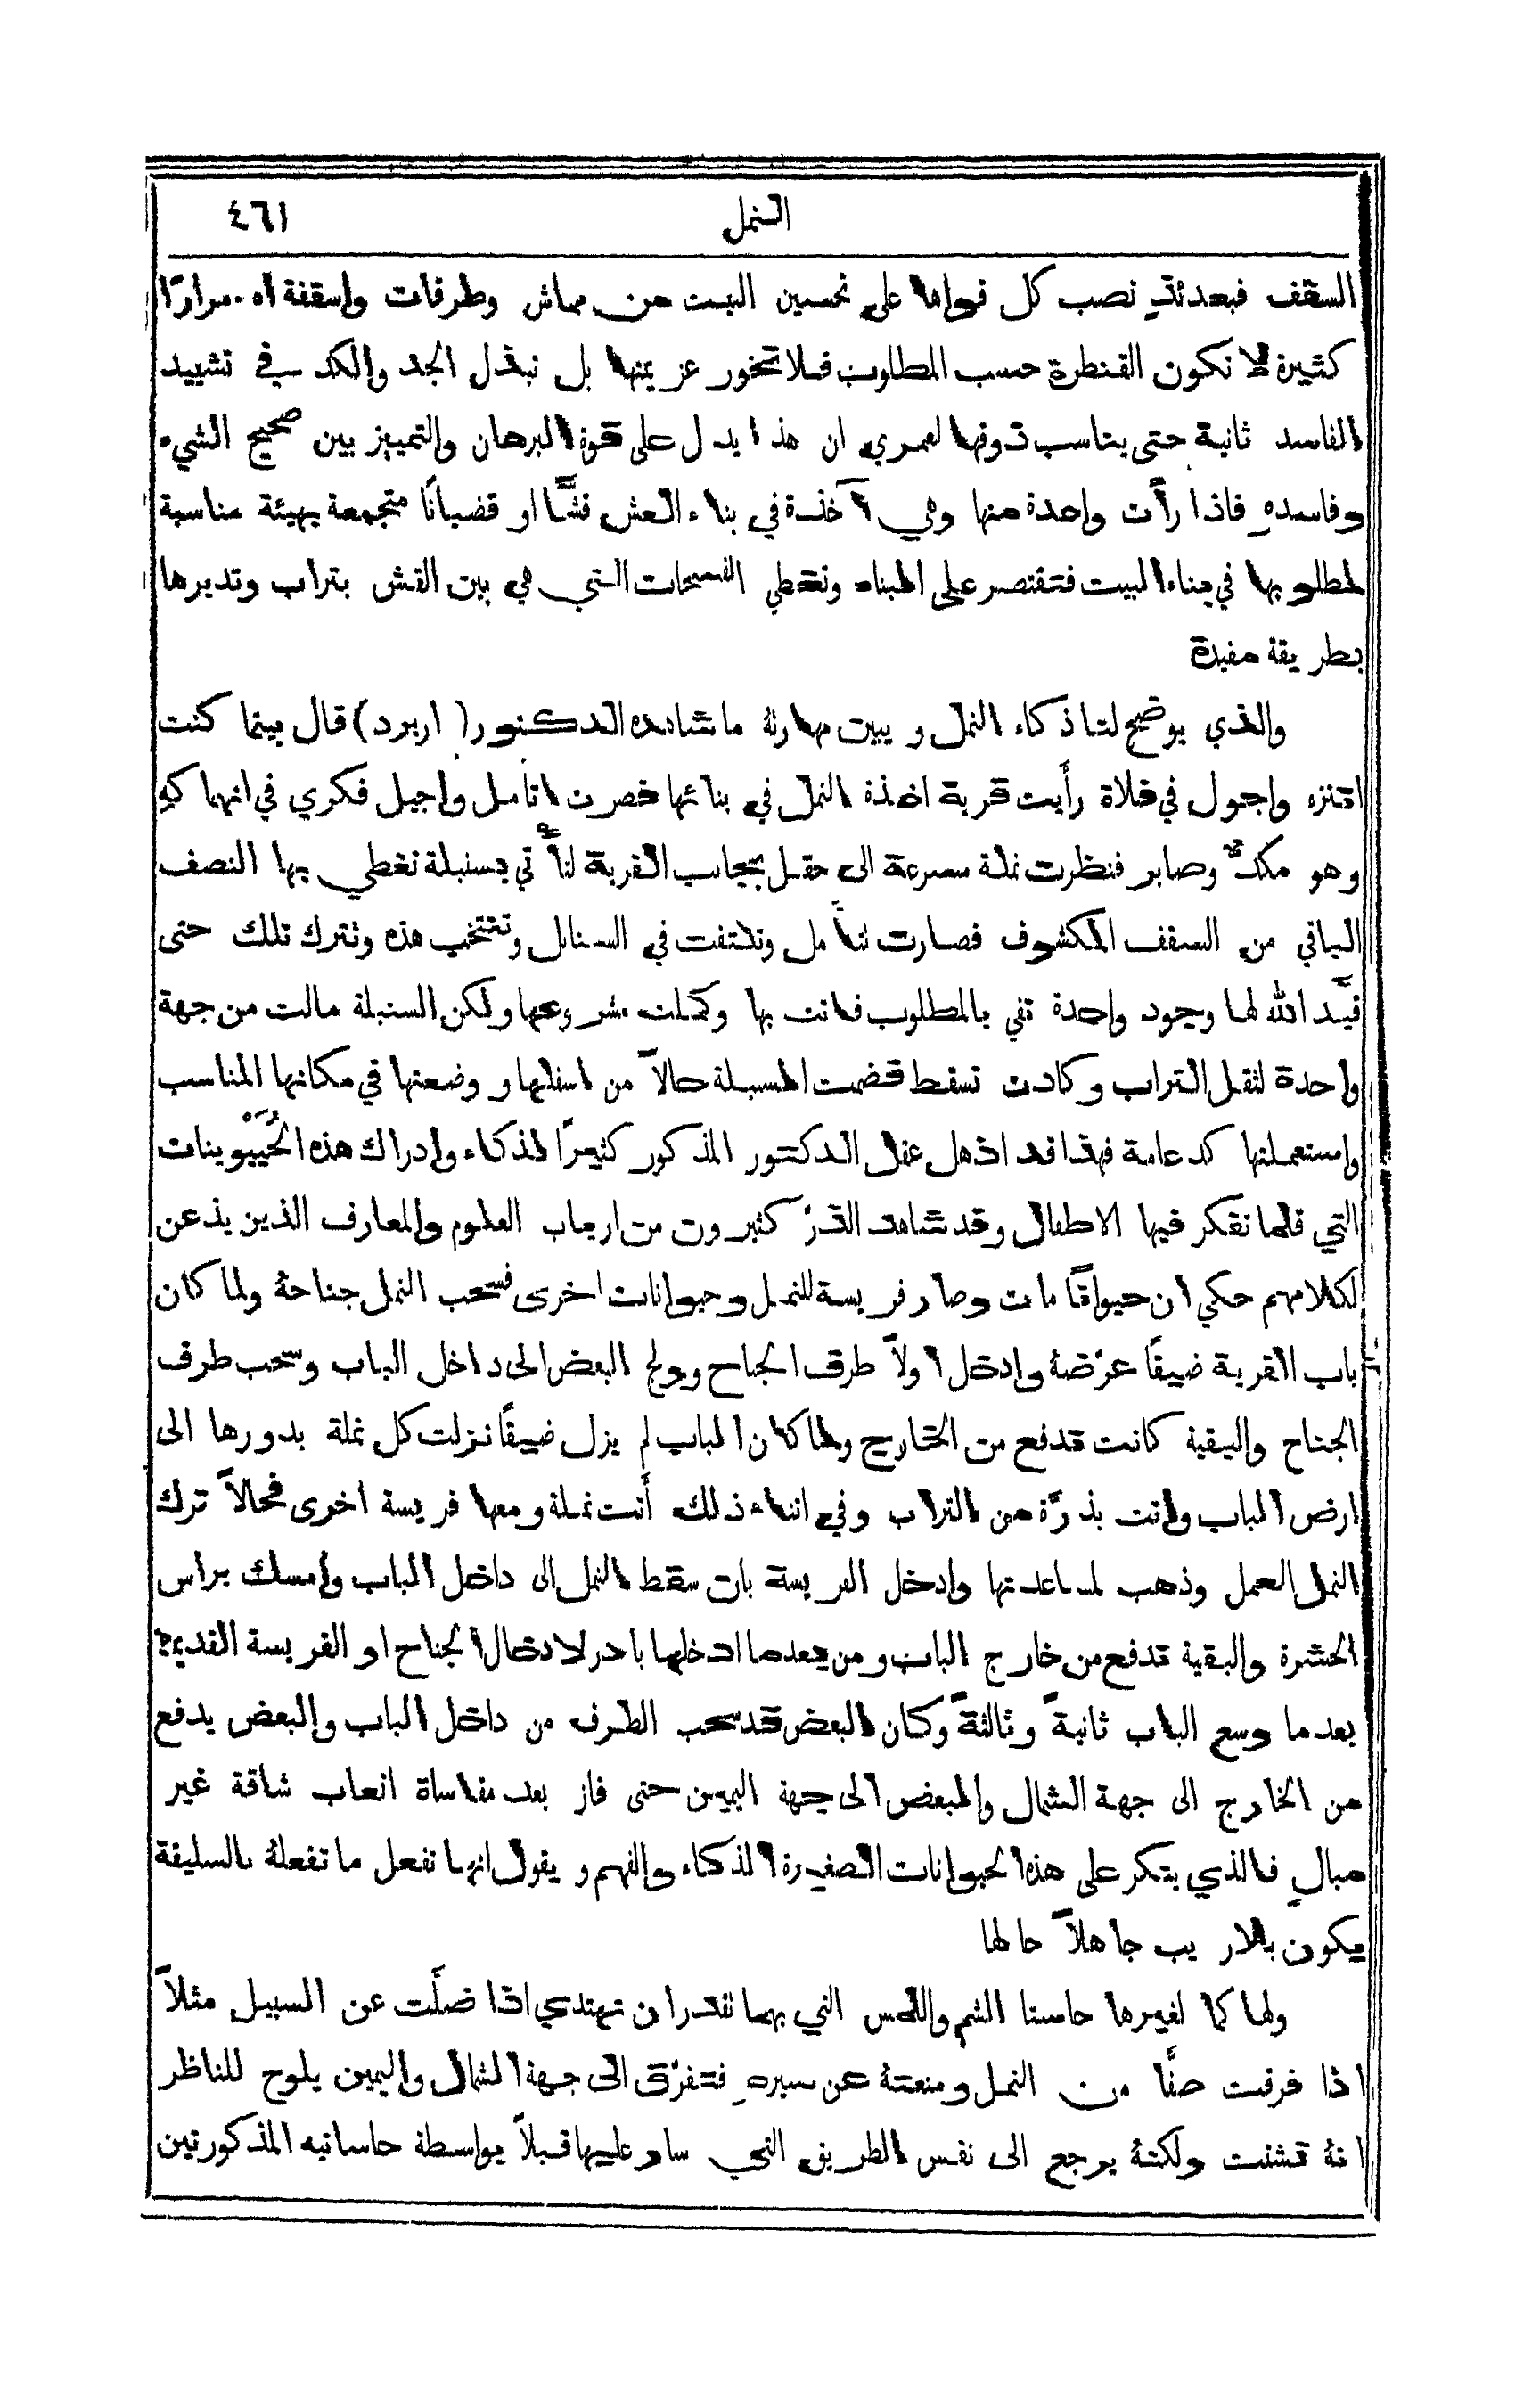 النمل
٤٦١
السقف فبعدئذٍ نصب كل قواها على تحسين البيت من مماش وطرقات واسقفة اه. مرارًا
كثيرة لا تكون القنطرة حسب المطلوب فلا تخور عزيمتها بل تبذل الجد والكد في تشييد
الفاسد ثانية حتى يناسب ذوقها لعمري ان هذا يدل على قوة البرهان والتمييز بين صحيح الشيء
وفاسدهِ فاذا رأت واحدة منها وهي آخذة في بناء العش قشًّا او قضبانًا متجمعة بهيئة مناسبة
لمطلوبها في بناء البيت فتقتصر على البناء وتغطي الفسحات التي هي بين القش بتراب وتديرها
بطريقة مفيدة
والذي يوضح لنا ذكاء النمل ويبين مهارته ما شاهده الدكتور (اربرد) قال بينما كنت
اتنزه واجول في فلاة رأيت قرية اخذة النمل في بنائها فصرت اتامل واجيل فكري في انهماكهِ
وهو مكدٌّ وصابر فنظرت نملة مسرعة الى حقل بجانب القرية لتأتي بسنبلة تغطي بها النصف
الباقي من السقف المكشوف فصارت تتأمل وتلتفت في السنابل وتنتخب هذه وتترك تلك حتى
قيَّد الله لها وجود واحدة تفي بالمطلوب فاتت بها وكملت مشروعها ولكن السنبلة مالت من جهة
واحدة لثقل التراب وكادت تسقط قضمت السبلة حالاً من اسفلها ووضعتها في مكانها المناسب
واستعملتها كدعامة فهذا قد اذهل عقل الدكتور المذكور كثيرًا لذكاء وادراك هذه الحُيَيْوينات
التي قلما تفكر فيها الاطفال وقد شاهد القدرَ كثيرون من ارباب العلوم والمعارف الذين يذعن
لكلامهم حكي ان حيوانًا مات وصار فريسة للنمل وحيوانات اخرى فسحب النمل جناحهُ ولما كان
باب القرية ضيقًا عرّضهُ وادخل اولاً طرف الجناح وولج البعض الى داخل الباب وسحب طرف
الجناح والبقية كانت تدفع من الخارج ولما كان الباب لم يزل ضيقًا نزلت كل نملة بدورها الى
ارض الباب واتت بذرّة من التراب وفي اثناء ذلك أتت نملة ومعها فريسة اخرى فحالاً ترك
النمل العمل وذهب لمساعدتها وادخل الفريسة بان سقط النمل الى داخل الباب وامسك براس
الحشرة والبقية تدفع من خارج الباب ومن بعدما ادخلها بادر لادخال الجناح او الفريسة القديمة
بعدما وسع الباب ثانيةً وثالثةً وكان البعض قد سحب الطرف من داخل الباب والبعض يدفع
من الخارج الى جهة الشمال والبعض الى جهة اليمين حتى فاز بعد مقاساة اتعاب شاقة غير
مبالٍ فالذي ينكر على هذه الحيوانات الصغيرة الذكاء والفهم ويقول انها تفعل ما تفعلهُ بالسليقة
يكون بلا ريب جاهلاً حالها
ولها كما لغيرها حاستا الشم واللمس التي بهما تقدر ان تهتدي اذا ضلّت عن السبيل مثلاً
اذا فرقت صفًّا من النمل ومنعتهُ عن سيرهِ فتفرّق الى جهة الشمال واليمين يلوح للناظر
انهُ تشتت ولكنهُ يرجع الى نفس الطريق التي سار عليها قبلاً بواسطة حاساتيه المذكورتين